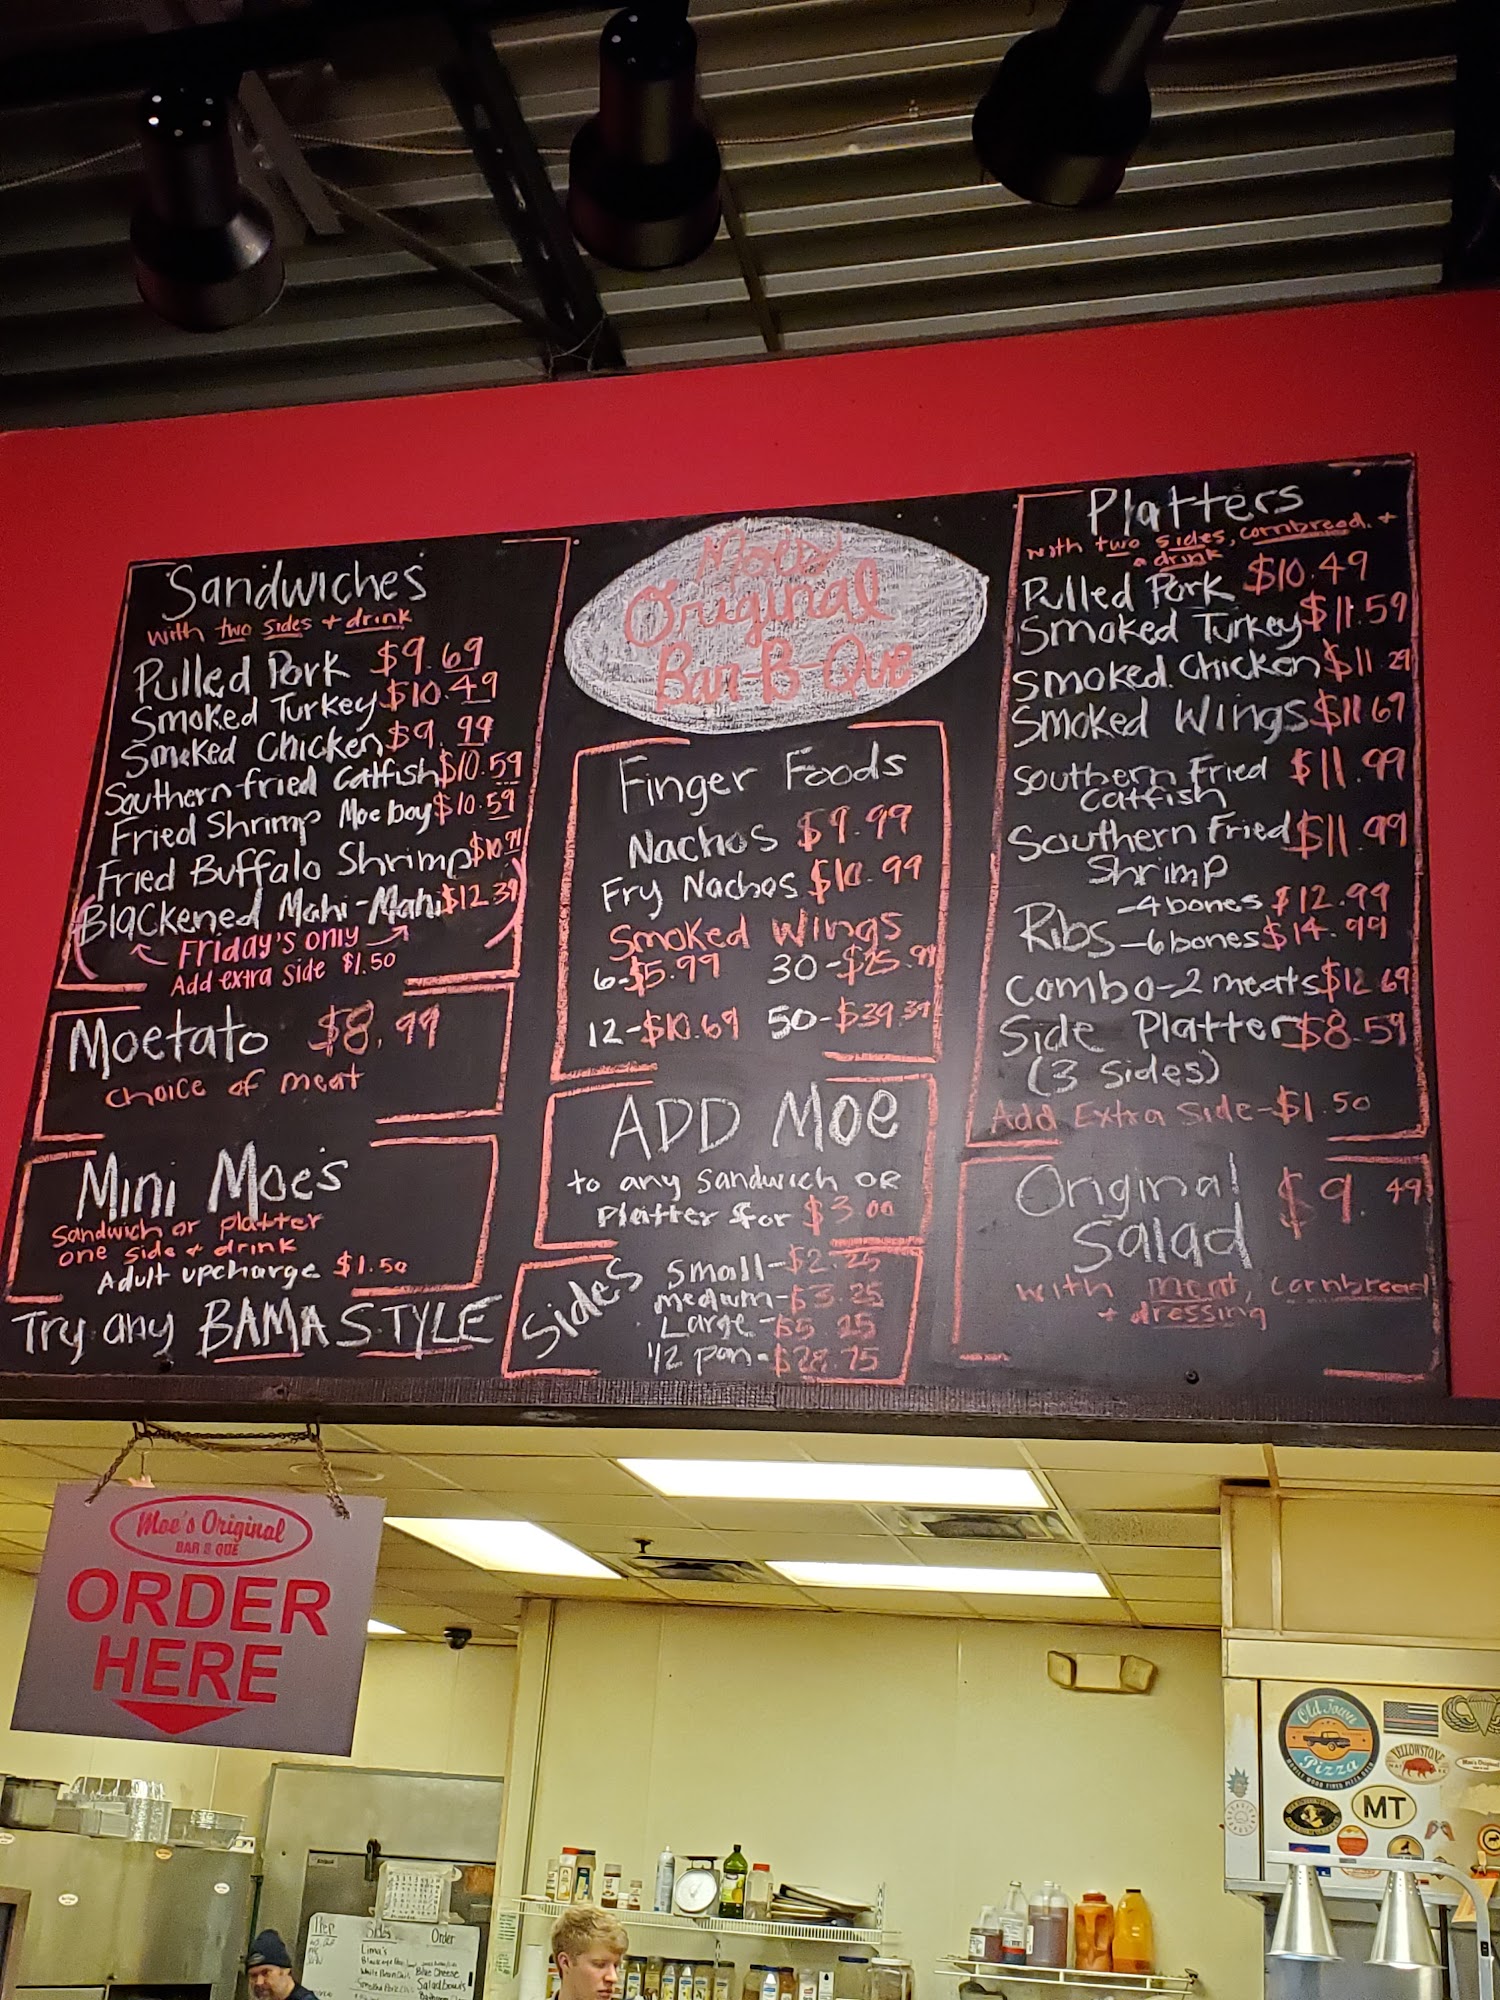 Sandwiches
with two sides + drink
Pulled Pork $9.69
Smoked Turkey $10.49
Smoked Chicken $9.99
Southern fried catfish $10.59
Fried Shrimp Moe boy $10.59
Fried Buffalo Shrimp $10.99
Blackened Mahi-Mahi $12.39
Friday's only
Add extra side $1.50
Moetato $8.99
choice of meat
Mini Moe's
Sandwich or platter
one side + drink
Adult upcharge $1.50
Try any BAMA STYLE
Moe's
Original
Bar-B-Que
Finger Foods
Nachos $9.99
Fry Nachos $10.99
Smoked Wings
6-$5.99 30-$25.99
12-$10.69 50-$39.39
ADD Moe
to any sandwich OR
Platter for $3.00
Sides
Small-$2.25
medium-$3.25
Large-$5.25
1/2 pan-$28.75
Platters
with two sides, cornbread, +
a drink
Pulled Pork $10.49
Smoked Turkey $11.59
Smoked Chicken $11.29
Smoked Wings $11.69
Southern Fried $11.99
Catfish
Southern Fried $11.99
Shrimp
Ribs -4 bones $12.99
-6 bones $14.99
Combo-2 meats $12.69
Side Platter $8.59
(3 sides)
Add Extra Side-$1.50
Original $9.49
Salad
with meat, cornbread
+ dressing
Moe's Original
BAR B QUE
ORDER
HERE
Old Town
Pizza
YELLOWSTONE
MT
Prep Sides Order
Lima's
Blue Cheese